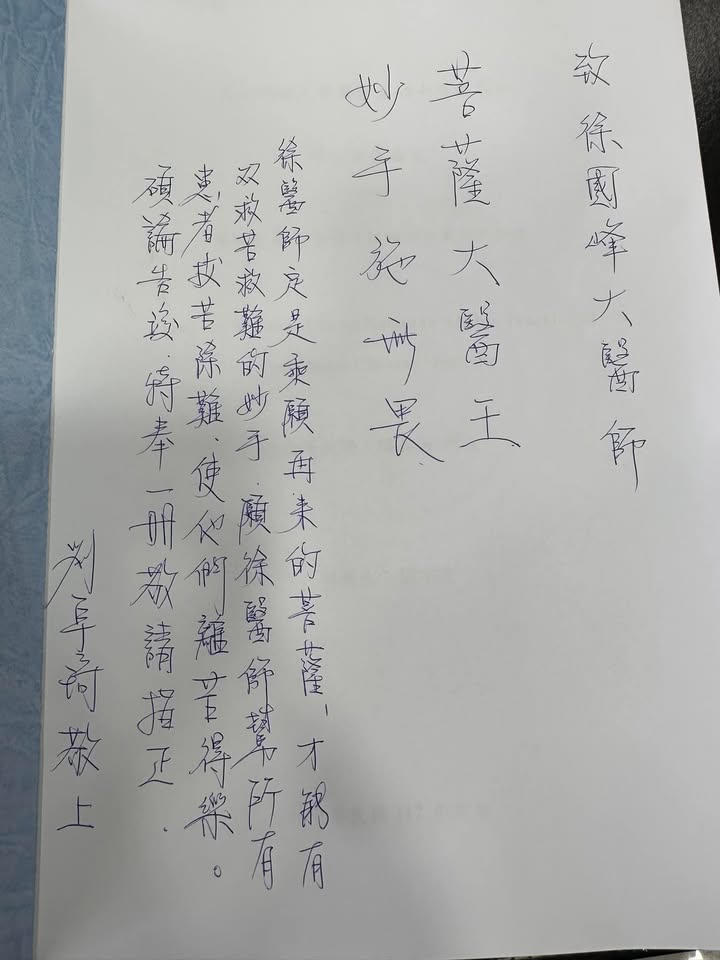 致徐國峰大醫師
菩薩大醫王
妙手施無畏
徐醫師定是乘願再來的菩薩，才能有
双救苦救難的妙手．願徐醫師幫所有
患者拔苦除難、使他們離苦得樂。
碩論告竣．特奉一冊敬請指正．
敬上